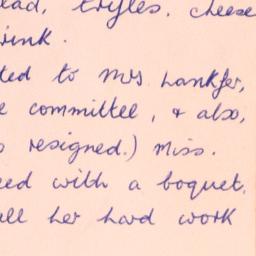 ead, trifles, cheese
rink.
ted to Mrs Lankfer,
e committee, & also,
o resigned.) Miss.
eed with a boquet,
all her hard work